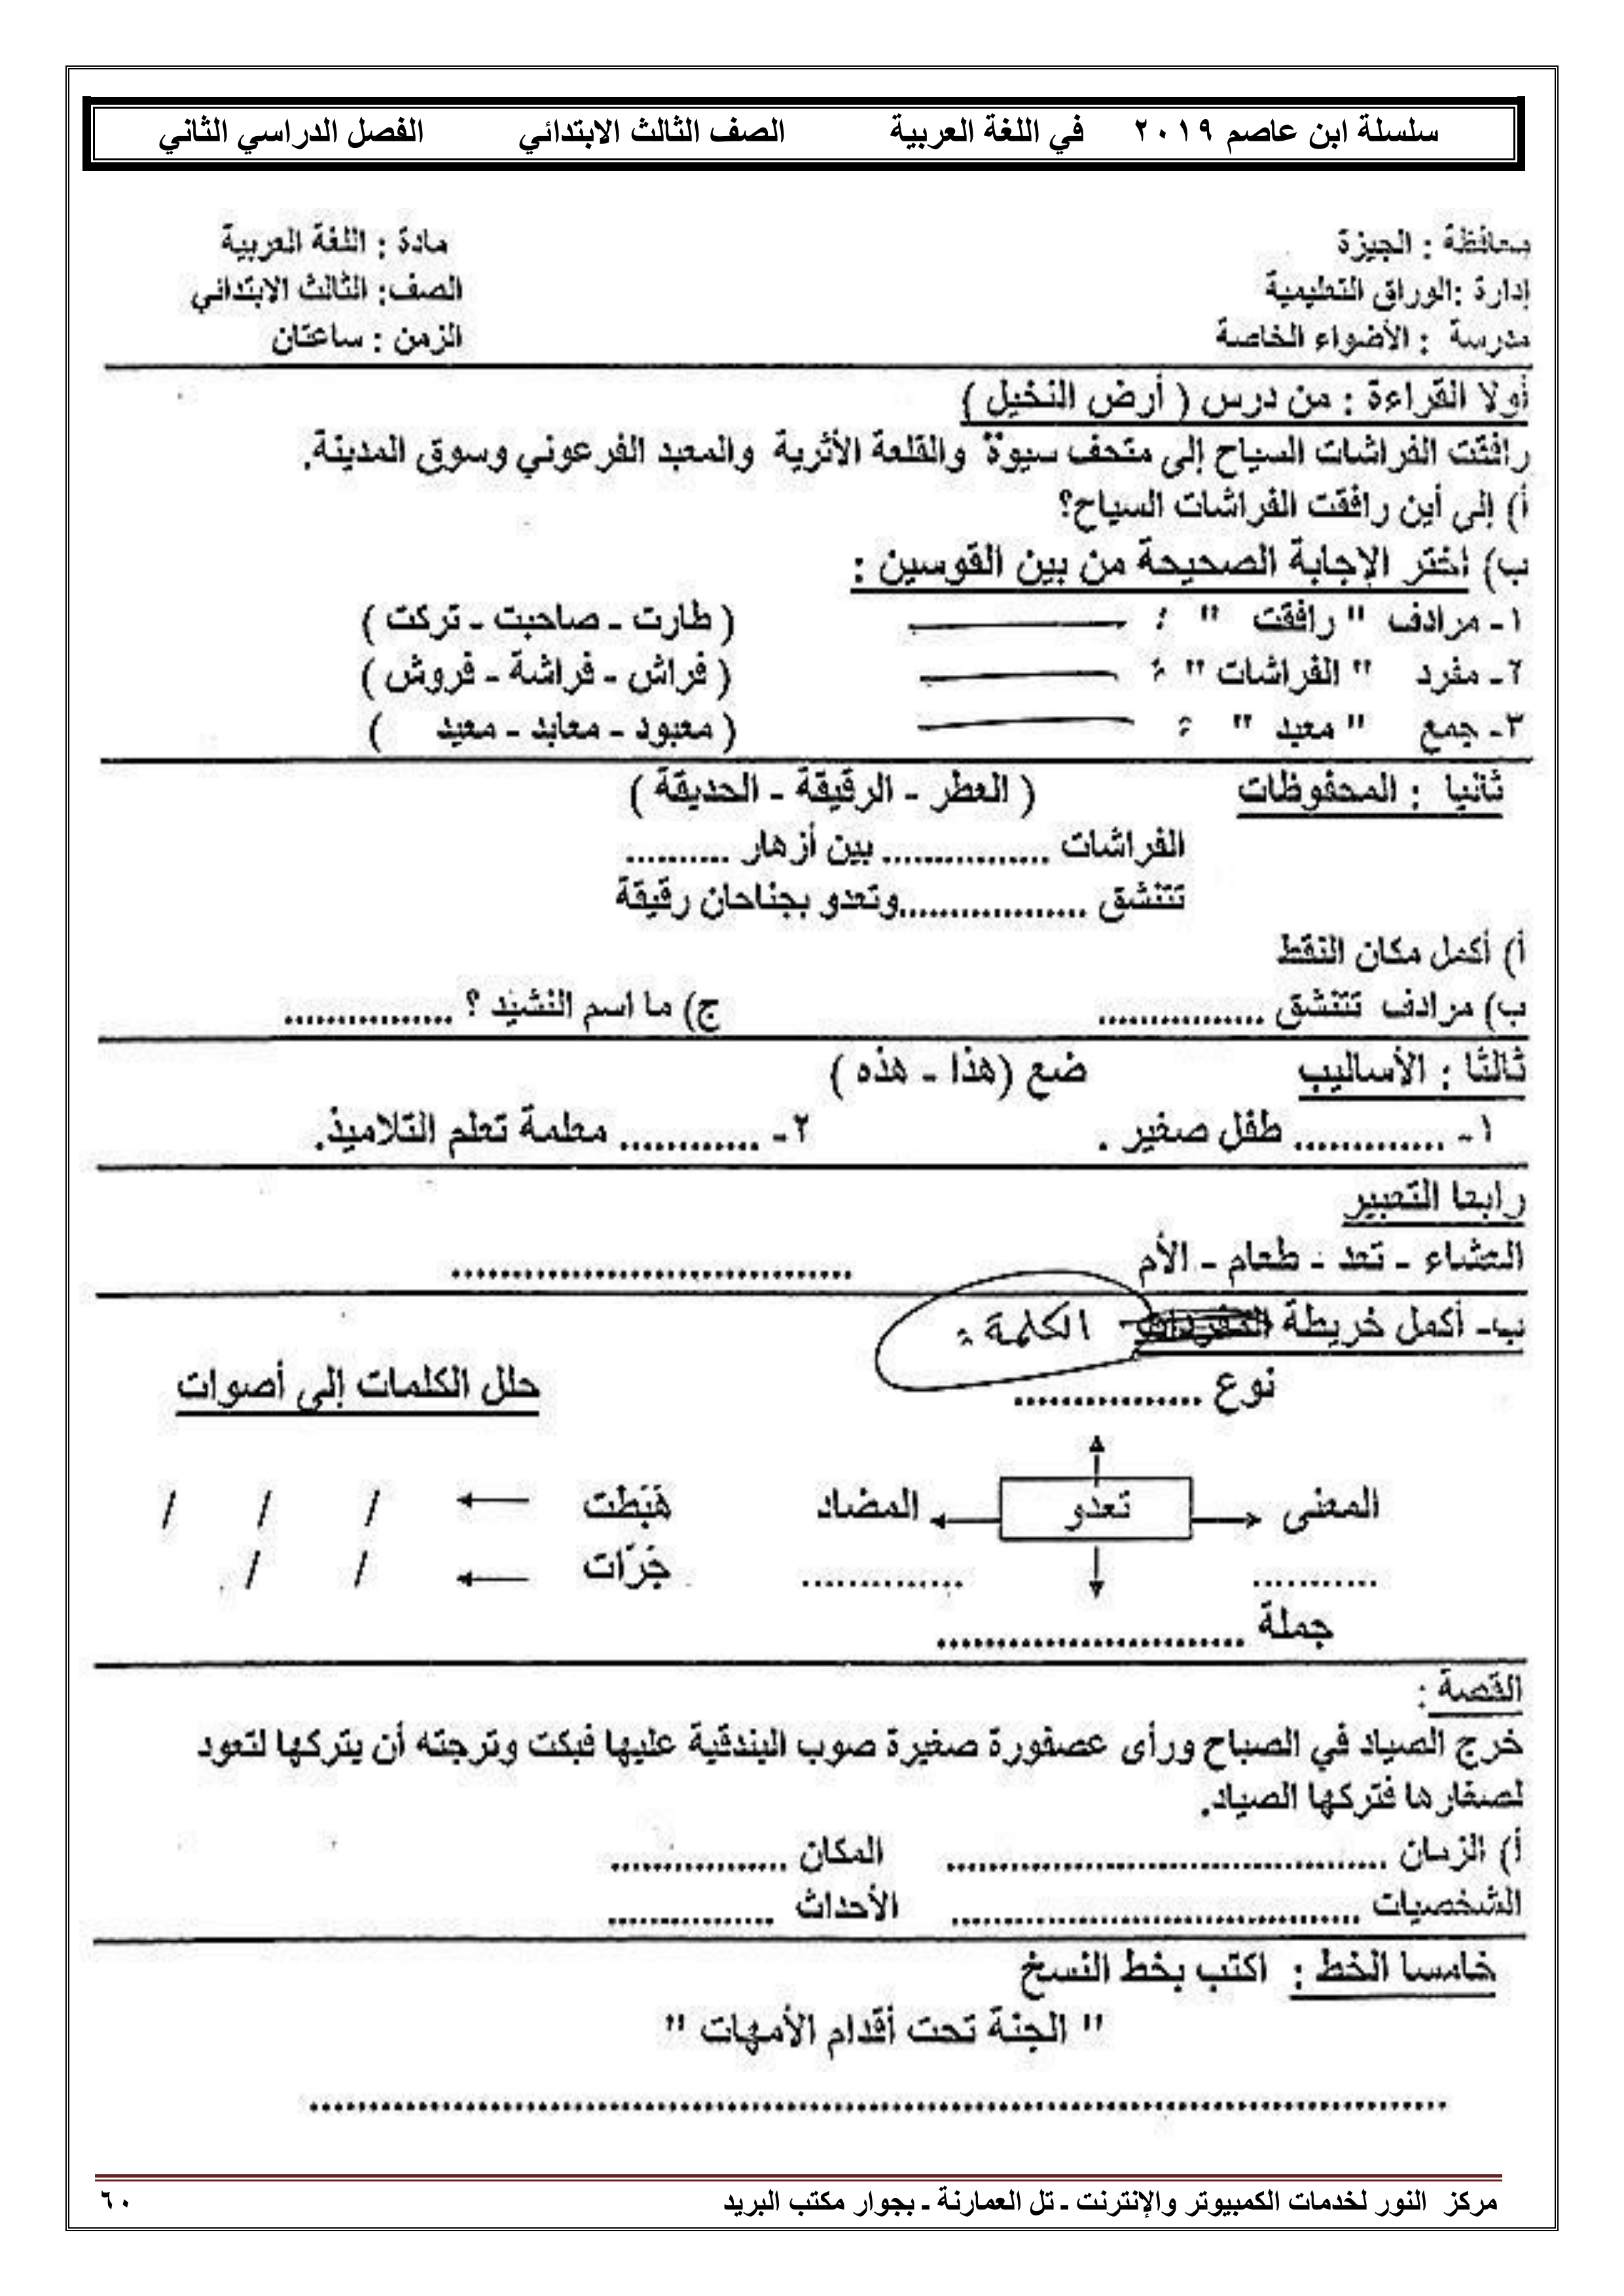 سلسلة ابن عاصم ٢٠١٩ في اللغة العربية الصف الثالث الابتدائي الفصل الدراسي الثاني
محافظة : الجيزة مادة : اللغة العربية
إدارة :الوراق التعليمية الصف: الثالث الابتدائي
مدرسة : الأضواء الخاصة الزمن : ساعتان
أولا القراءة : من درس ( أرض النخيل )
رافقت الفراشات السياح إلى متحف سيوة والقلعة الأثرية والمعبد الفرعوني وسوق المدينة.
أ) إلى أين رافقت الفراشات السياح؟
ب) اختر الإجابة الصحيحة من بين القوسين :
١- مرادف " رافقت " : ـــــــــ ( طارت - صاحبت - تركت )
٢- مفرد " الفراشات " : ـــــــــ ( فراش - فراشة - فروش )
٣- جمع " معبد " : ـــــــــ ( معبود - معابد - معيد )
ثانيا : المحفوظات ( العطر - الرقيقة - الحديقة )
الفراشات ................ بين أزهار ..........
تتنشق ..................وتعدو بجناحان رقيقة
أ) أكمل مكان النقط
ب) مرادف تتنشق ................ ج) ما اسم النشيد ؟ ................
ثالثا : الأساليب ضع (هذا - هذه )
١- ............. طفل صغير . ٢- ............ معلمة تعلم التلاميذ.
رابعا التعبير
العشاء - تعد - طعام - الأم ..................................
ب- أكمل خريطة الكلمة :
نوع ................ حلل الكلمات إلى أصوات
المعنى تعدو المضاد هَبَطت ← / / /
........... .............. جَرّات ← / /
جملة ..........................
القصة :
خرج الصياد في الصباح ورأى عصفورة صغيرة صوب البندقية عليها فبكت وترجته أن يتركها لتعود
لصغارها فتركها الصياد.
أ) الزمان .......................................... المكان .................
الشخصيات ....................................... الأحداث ................
خامسا الخط : اكتب بخط النسخ
" الجنة تحت أقدام الأمهات "
................................................................................................
مركز النور لخدمات الكمبيوتر والإنترنت ـ تل العمارنة ـ بجوار مكتب البريد ٦٠